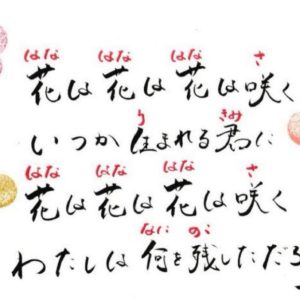 はな はな はな さ
花は 花は 花は咲く
う きみ
いつか 生まれる君に
はな はな はな さ
花は 花は 花は咲く
なに のこ
わたしは 何を残しただろ